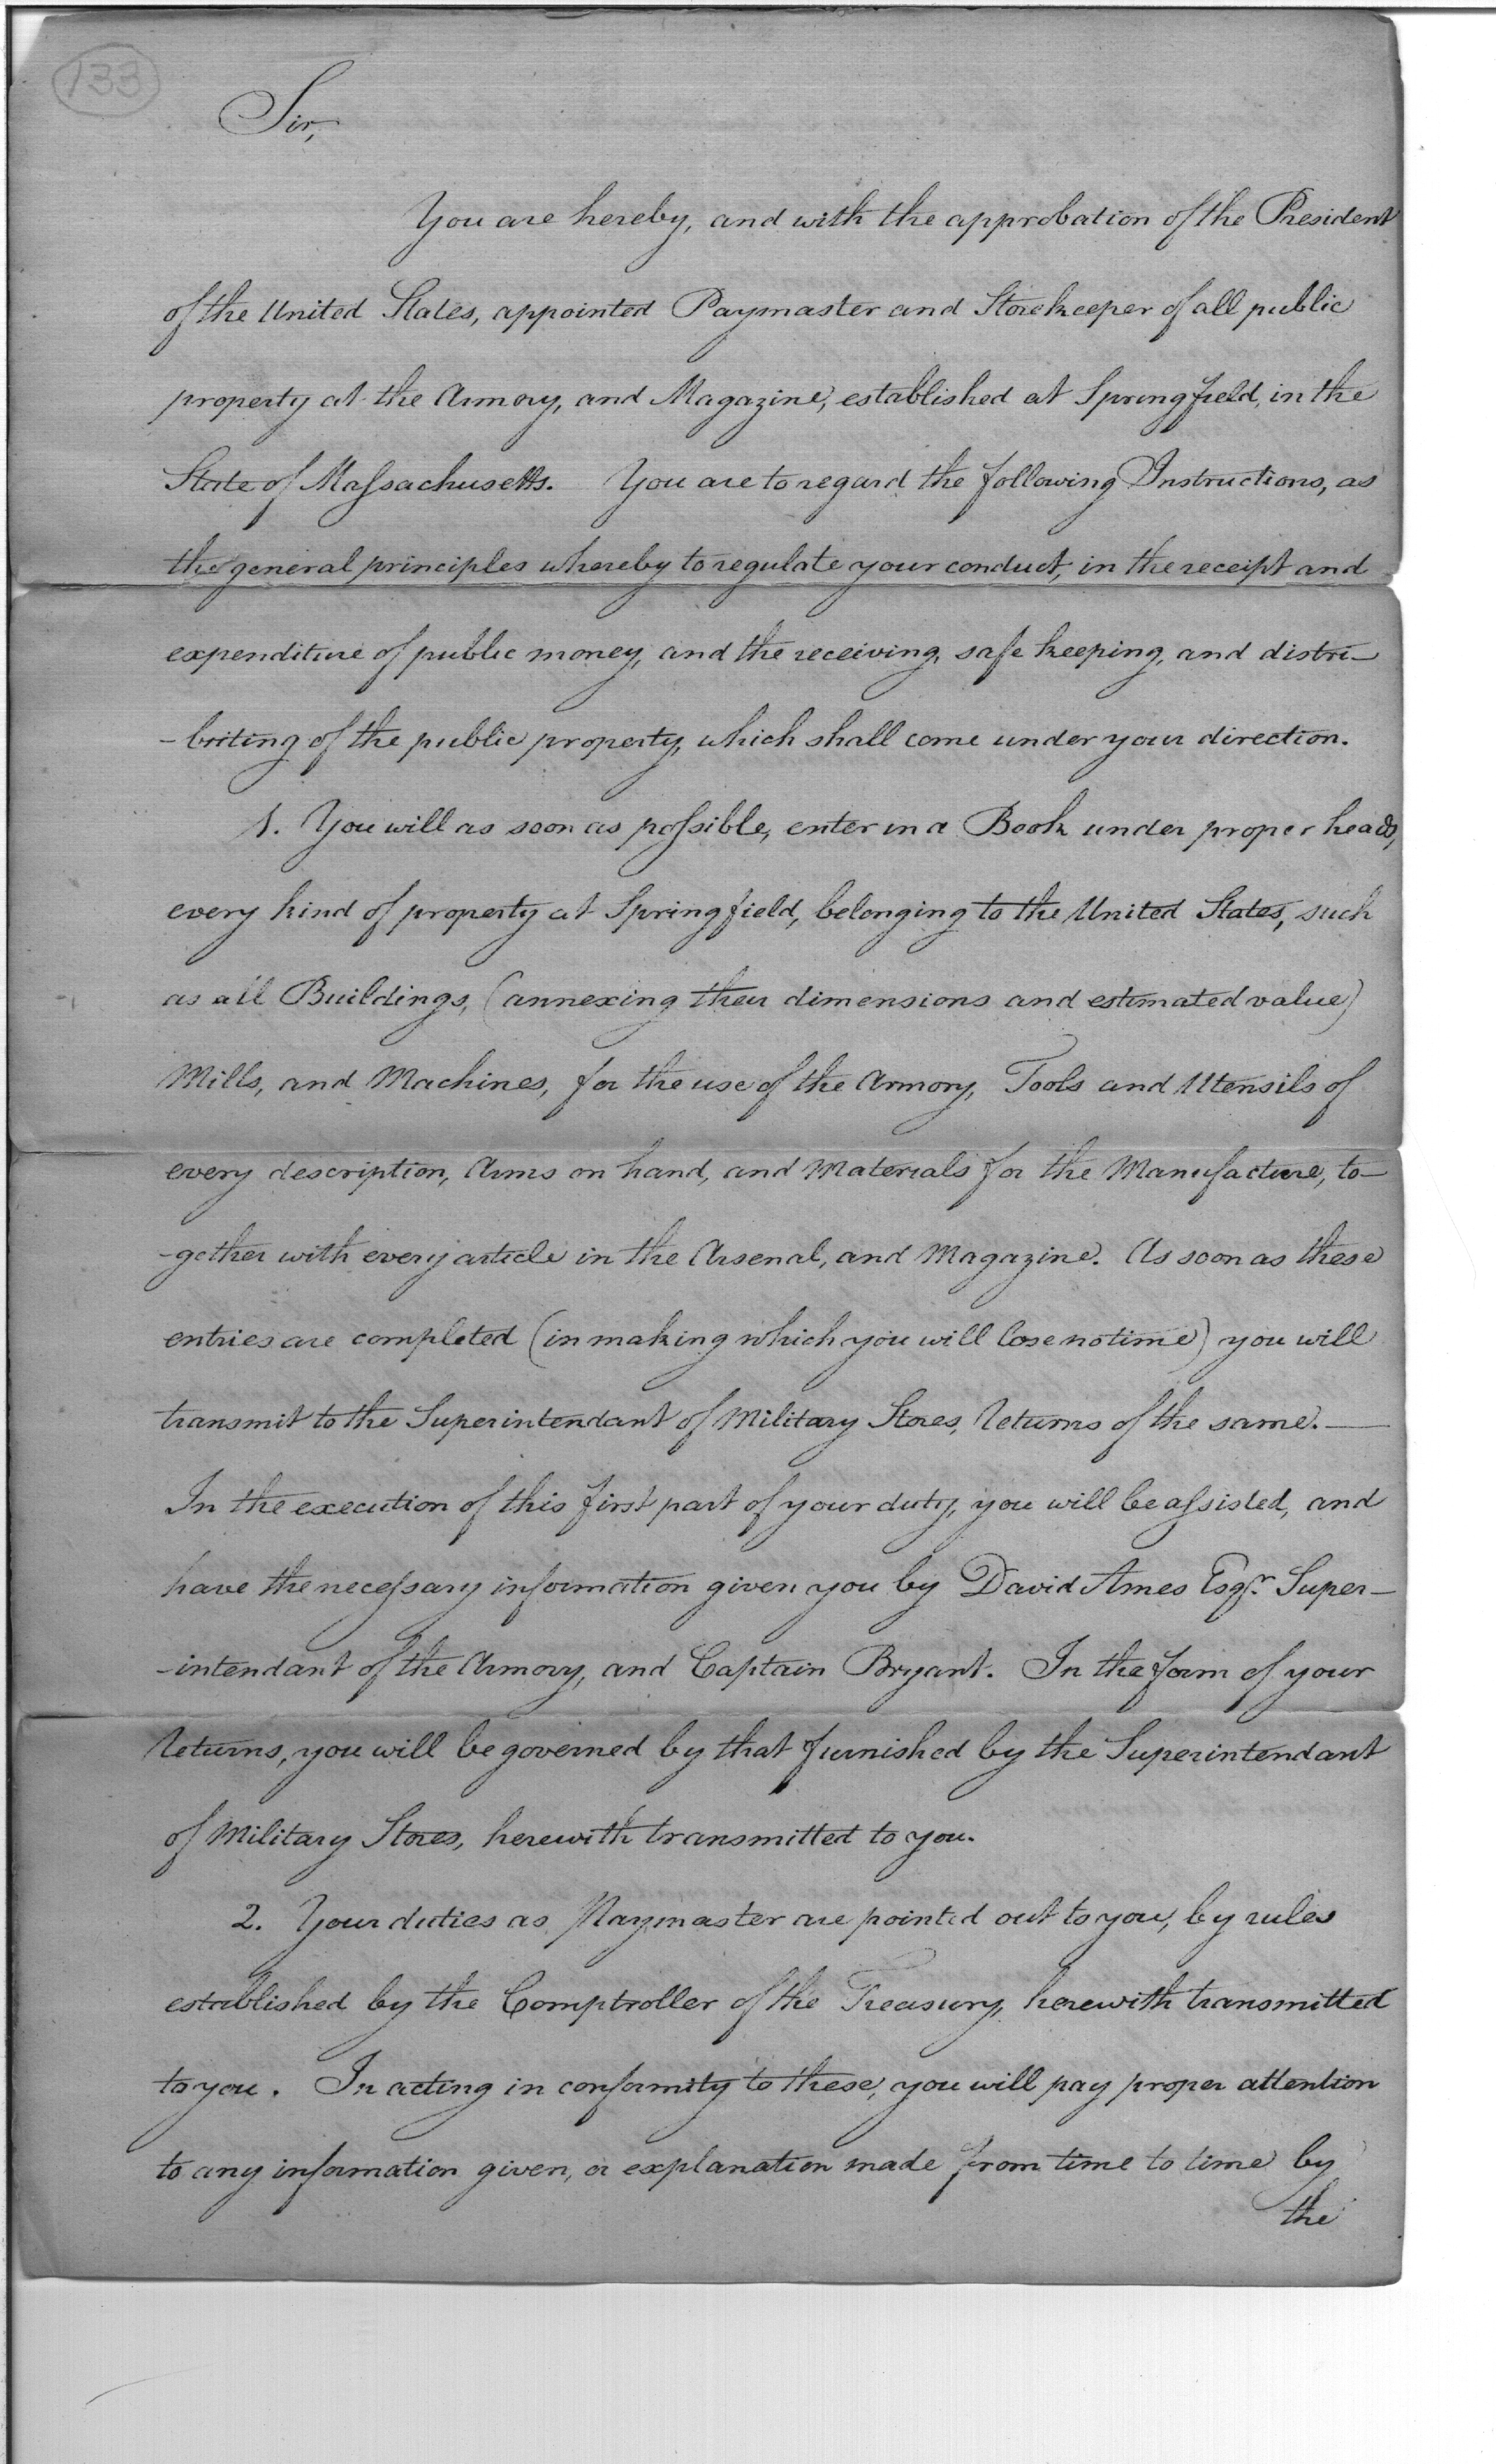 133
Sir,
You are hereby, and with the approbation of the President
of the United States, appointed Paymaster and Storekeeper of all public
property at the Armory, and Magazine, established at Springfield, in the
State of Massachusetts. You are to regard the following Instructions, as
the general principles whereby to regulate your conduct, in the receipt and
expenditure of public money, and the receiving, safe keeping, and distri-
-buting of the public property, which shall come under your direction.
1. You will as soon as possible, enter in a Book under proper heads,
every kind of property at Springfield, belonging to the United States, such
as all Buildings, (annexing their dimensions and estimated value)
Mills, and Machines, for the use of the Armory, Tools and Utensils of
every description, Arms on hand, and Materials for the Manufacture, to-
-gether with every article in the Arsenal, and Magazine. As soon as these
entries are completed (in making which you will lose no time) you will
transmit to the Superintendant of Military Stores, Returns of the same.—
In the execution of this first part of your duty, you will be assisted, and
have the necessary information given you by David Ames Esqr. Super-
-intendant of the Armory, and Captain Bryant. In the form of your
Returns, you will be governed by that furnished by the Superintendant
of Military Stores, herewith transmitted to you.
2. Your duties as Paymaster are pointed out to you, by rules
established by the Comptroller of the Treasury, herewith transmitted
to you. In acting in conformity to these, you will pay proper attention
to any information given, or explanation made from time to time by
the